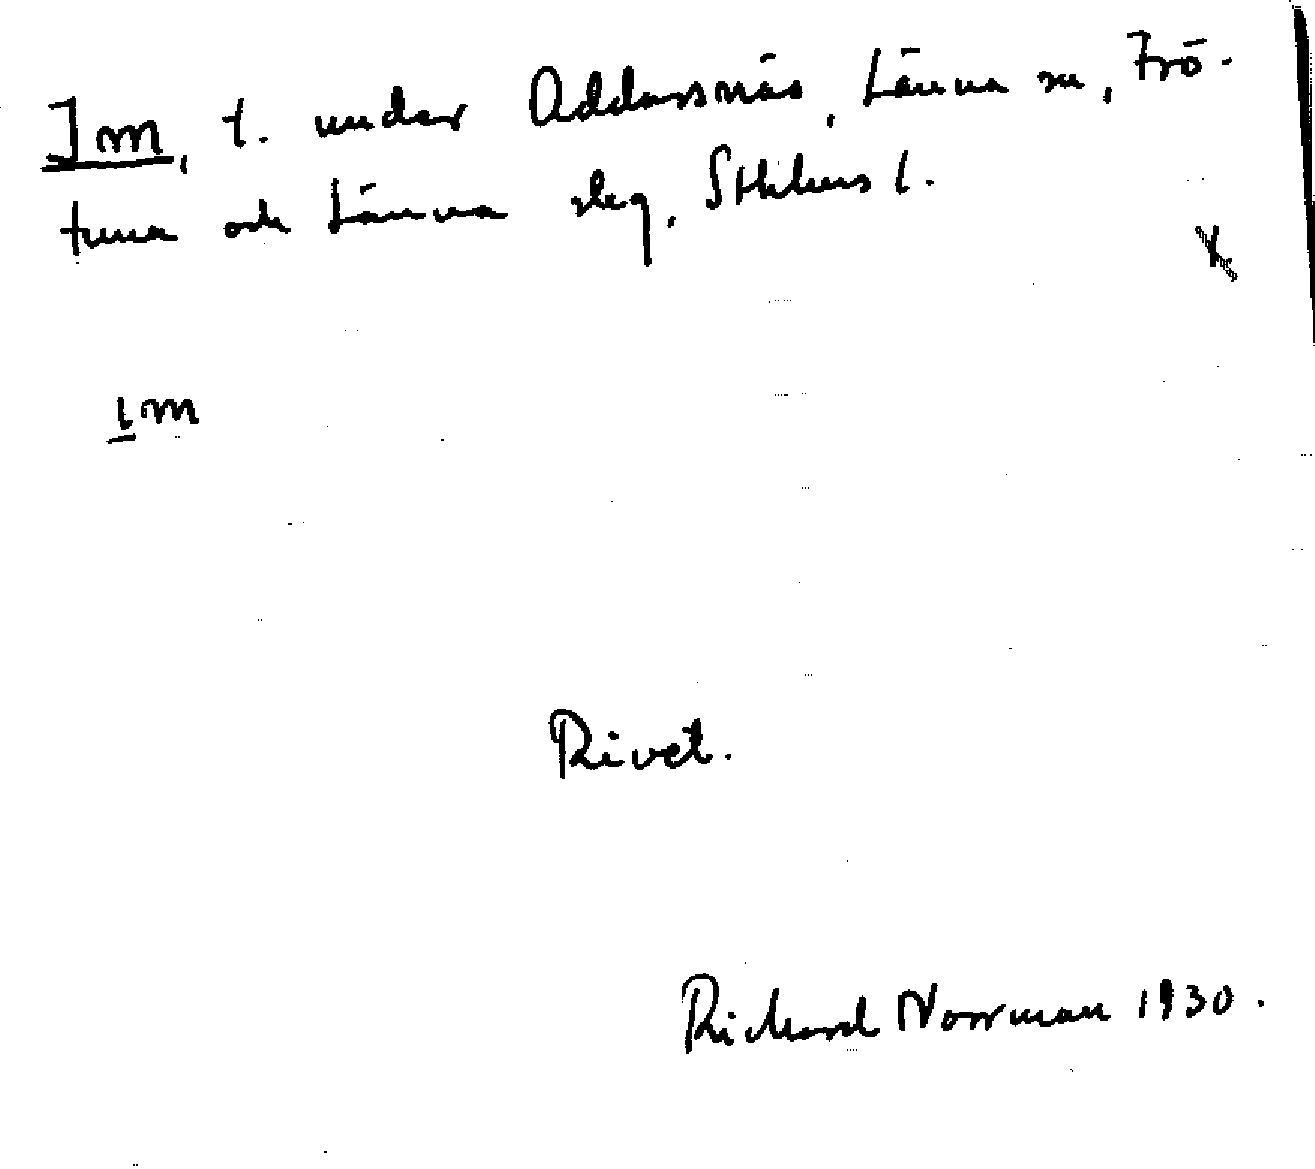 Im, t. under Addarsnäs, Länna sn, Frö-
tuna och Länna skg, Sthlms l.
x
ım
Rivet.
Richard Norrman 1930.